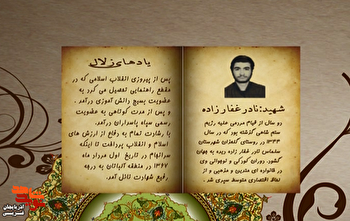 شهید: نادر غفارزاده
دو سال از قیام مردمی علیه رژیم
ستم شاهی گذشته بود که در سال
۱۳۴۴ در روستای گلعذان شهرستان
سلماس نادر غفار زاده دیده به جهان
گشود. دوران کودکی و نوجوانی وی
در خانواده ای متدین و مذهبی و از
لحاظ اقتصادی متوسط سپری شد.
یادهای زلال
پس از پیروزی انقلاب اسلامی که در
مقطع راهنمایی تحصیل می کرد به
عضویت بسیج دانش آموزی درآمد.
و پس از مدت کوتاهی به عضویت
رسمی سپاه پاسداران درآمد.
با رشادت تمام به دفاع از ارزش های
اسلام و انقلاب پرداخت تا اینکه
سرانجام در تاریخ اول مرداد ماه
۱۳۶۷ در منطقه آلباتان به درجه
رفیع شهادت نائل آمد.
آذربایجان غربی